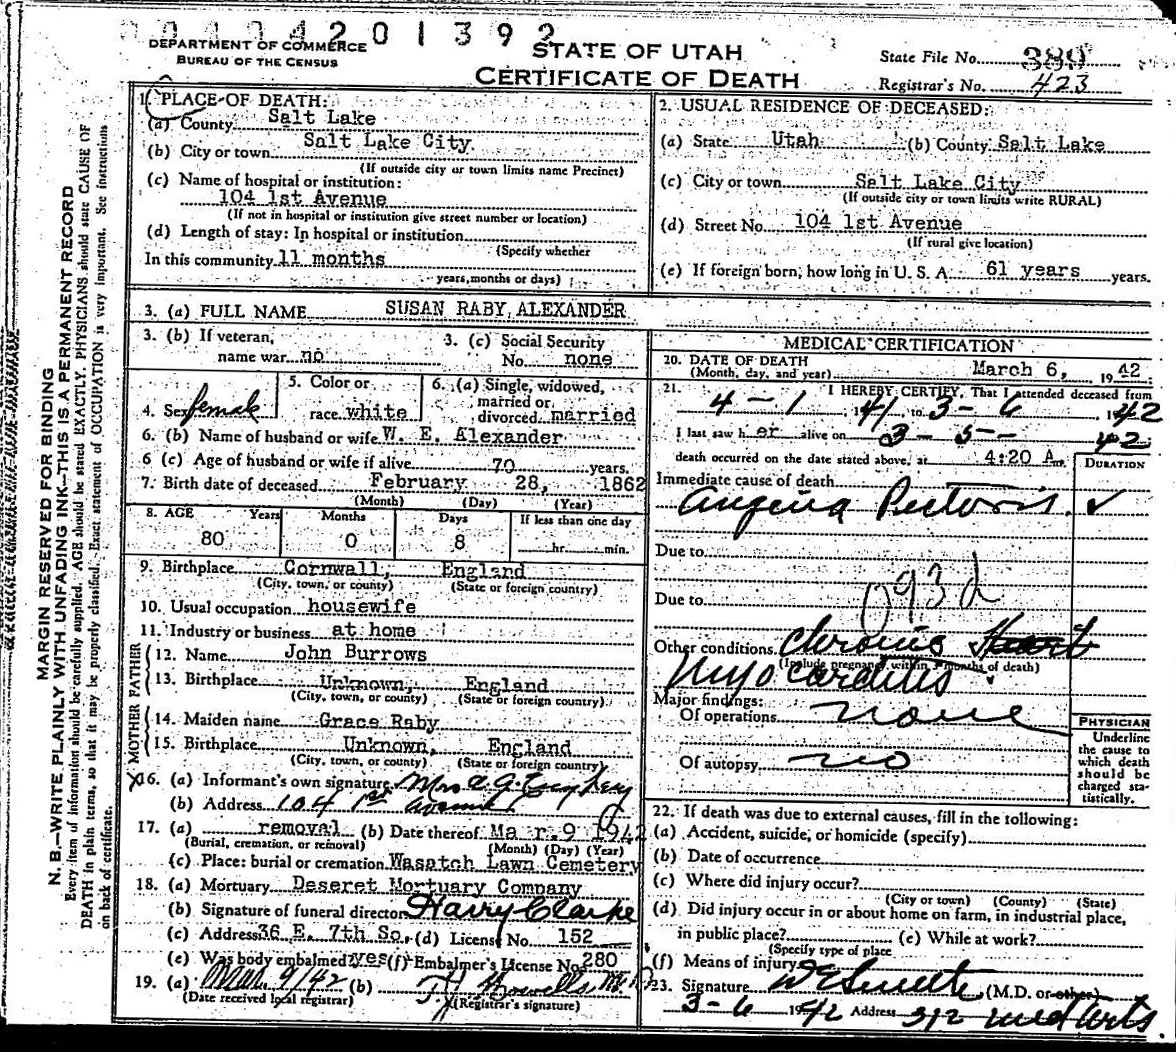 0404201392
DEPARTMENT OF COMMERCE
BUREAU OF THE CENSUS
STATE OF UTAH
CERTIFICATE OF DEATH
State File No. 389
Registrar's No. 423
MARGIN RESERVED FOR BINDING
N. B.—WRITE PLAINLY WITH UNFADING INK—THIS IS A PERMANENT RECORD
Every item of information should be carefully supplied. AGE should be stated EXACTLY. PHYSICIANS should state CAUSE OF
DEATH in plain terms, so that it may be properly classified. Exact statement of OCCUPATION is very important. See instructions
on back of certificate.
1. PLACE OF DEATH:
(a) County Salt Lake
(b) City or town Salt Lake City
(If outside city or town limits name Precinct)
(c) Name of hospital or institution:
104 1st Avenue
(If not in hospital or institution give street number or location)
(d) Length of stay: In hospital or institution
(Specify whether
In this community 11 months
years, months or days)
2. USUAL RESIDENCE OF DECEASED:
(a) State Utah (b) County Salt Lake
(c) City or town Salt Lake City
(If outside city or town limits write RURAL)
(d) Street No. 104 1st Avenue
(If rural give location)
(e) If foreign born, how long in U. S. A. 61 years years.
3. (a) FULL NAME SUSAN RABY ALEXANDER
3. (b) If veteran,
name war no
3. (c) Social Security
No. none
4. Sex female
5. Color or
race white
6. (a) Single, widowed,
married or
divorced married
6. (b) Name of husband or wife W. E. Alexander
6 (c) Age of husband or wife if alive 70 years.
7. Birth date of deceased February 28, 1862
(Month) (Day) (Year)
8. AGE Years Months Days If less than one day
80 0 8 hr. min.
9. Birthplace Cornwall, England
(City, town, or county) (State or foreign country)
10. Usual occupation housewife
11. Industry or business at home
FATHER
12. Name John Burrows
13. Birthplace Unknown, England
(City, town, or county) (State or foreign country)
MOTHER
14. Maiden name Grace Raby
15. Birthplace Unknown, England
(City, town, or county) (State or foreign country)
X16. (a) Informant's own signature Mrs
(b) Address 104 1st Avenue
17. (a) removal (b) Date thereof Mar. 9 1942
(Burial, cremation, or removal) (Month) (Day) (Year)
(c) Place: burial or cremation Wasatch Lawn Cemetery
18. (a) Mortuary Deseret Mortuary Company
(b) Signature of funeral director Harry Clarke
(c) Address 36 E. 7th So. (d) License No. 152
(e) Was body embalmed? yes (f) Embalmer's License No. 280
19. (a) Mar. 9/42 (b) T H Howells, M.D.
(Date received local registrar) (Registrar's signature)
MEDICAL CERTIFICATION
20. DATE OF DEATH
(Month, day, and year) March 6, 1942
21. I HEREBY CERTIFY, That I attended deceased from
4-1 1941 to 3-6 1942
I last saw her alive on 3-5- 42
death occurred on the date stated above, at 4:20 A.
DURATION
Immediate cause of death
Angina Pectoris. ✓
Due to
Due to
093d
Other conditions Chronic Heart
(Include pregnancy within 3 months of death)
Myocarditis
Major findings:
Of operations none
Of autopsy no
PHYSICIAN
Underline
the cause to
which death
should be
charged sta-
tistically.
22. If death was due to external causes, fill in the following:
(a) Accident, suicide, or homicide (specify)
(b) Date of occurrence
(c) Where did injury occur?
(City or town) (County) (State)
(d) Did injury occur in or about home on farm, in industrial place,
in public place? (e) While at work?
(Specify type of place
(f) Means of injury
23. Signature (M.D. or other)
3-6 1942 Address 312 Med Arts